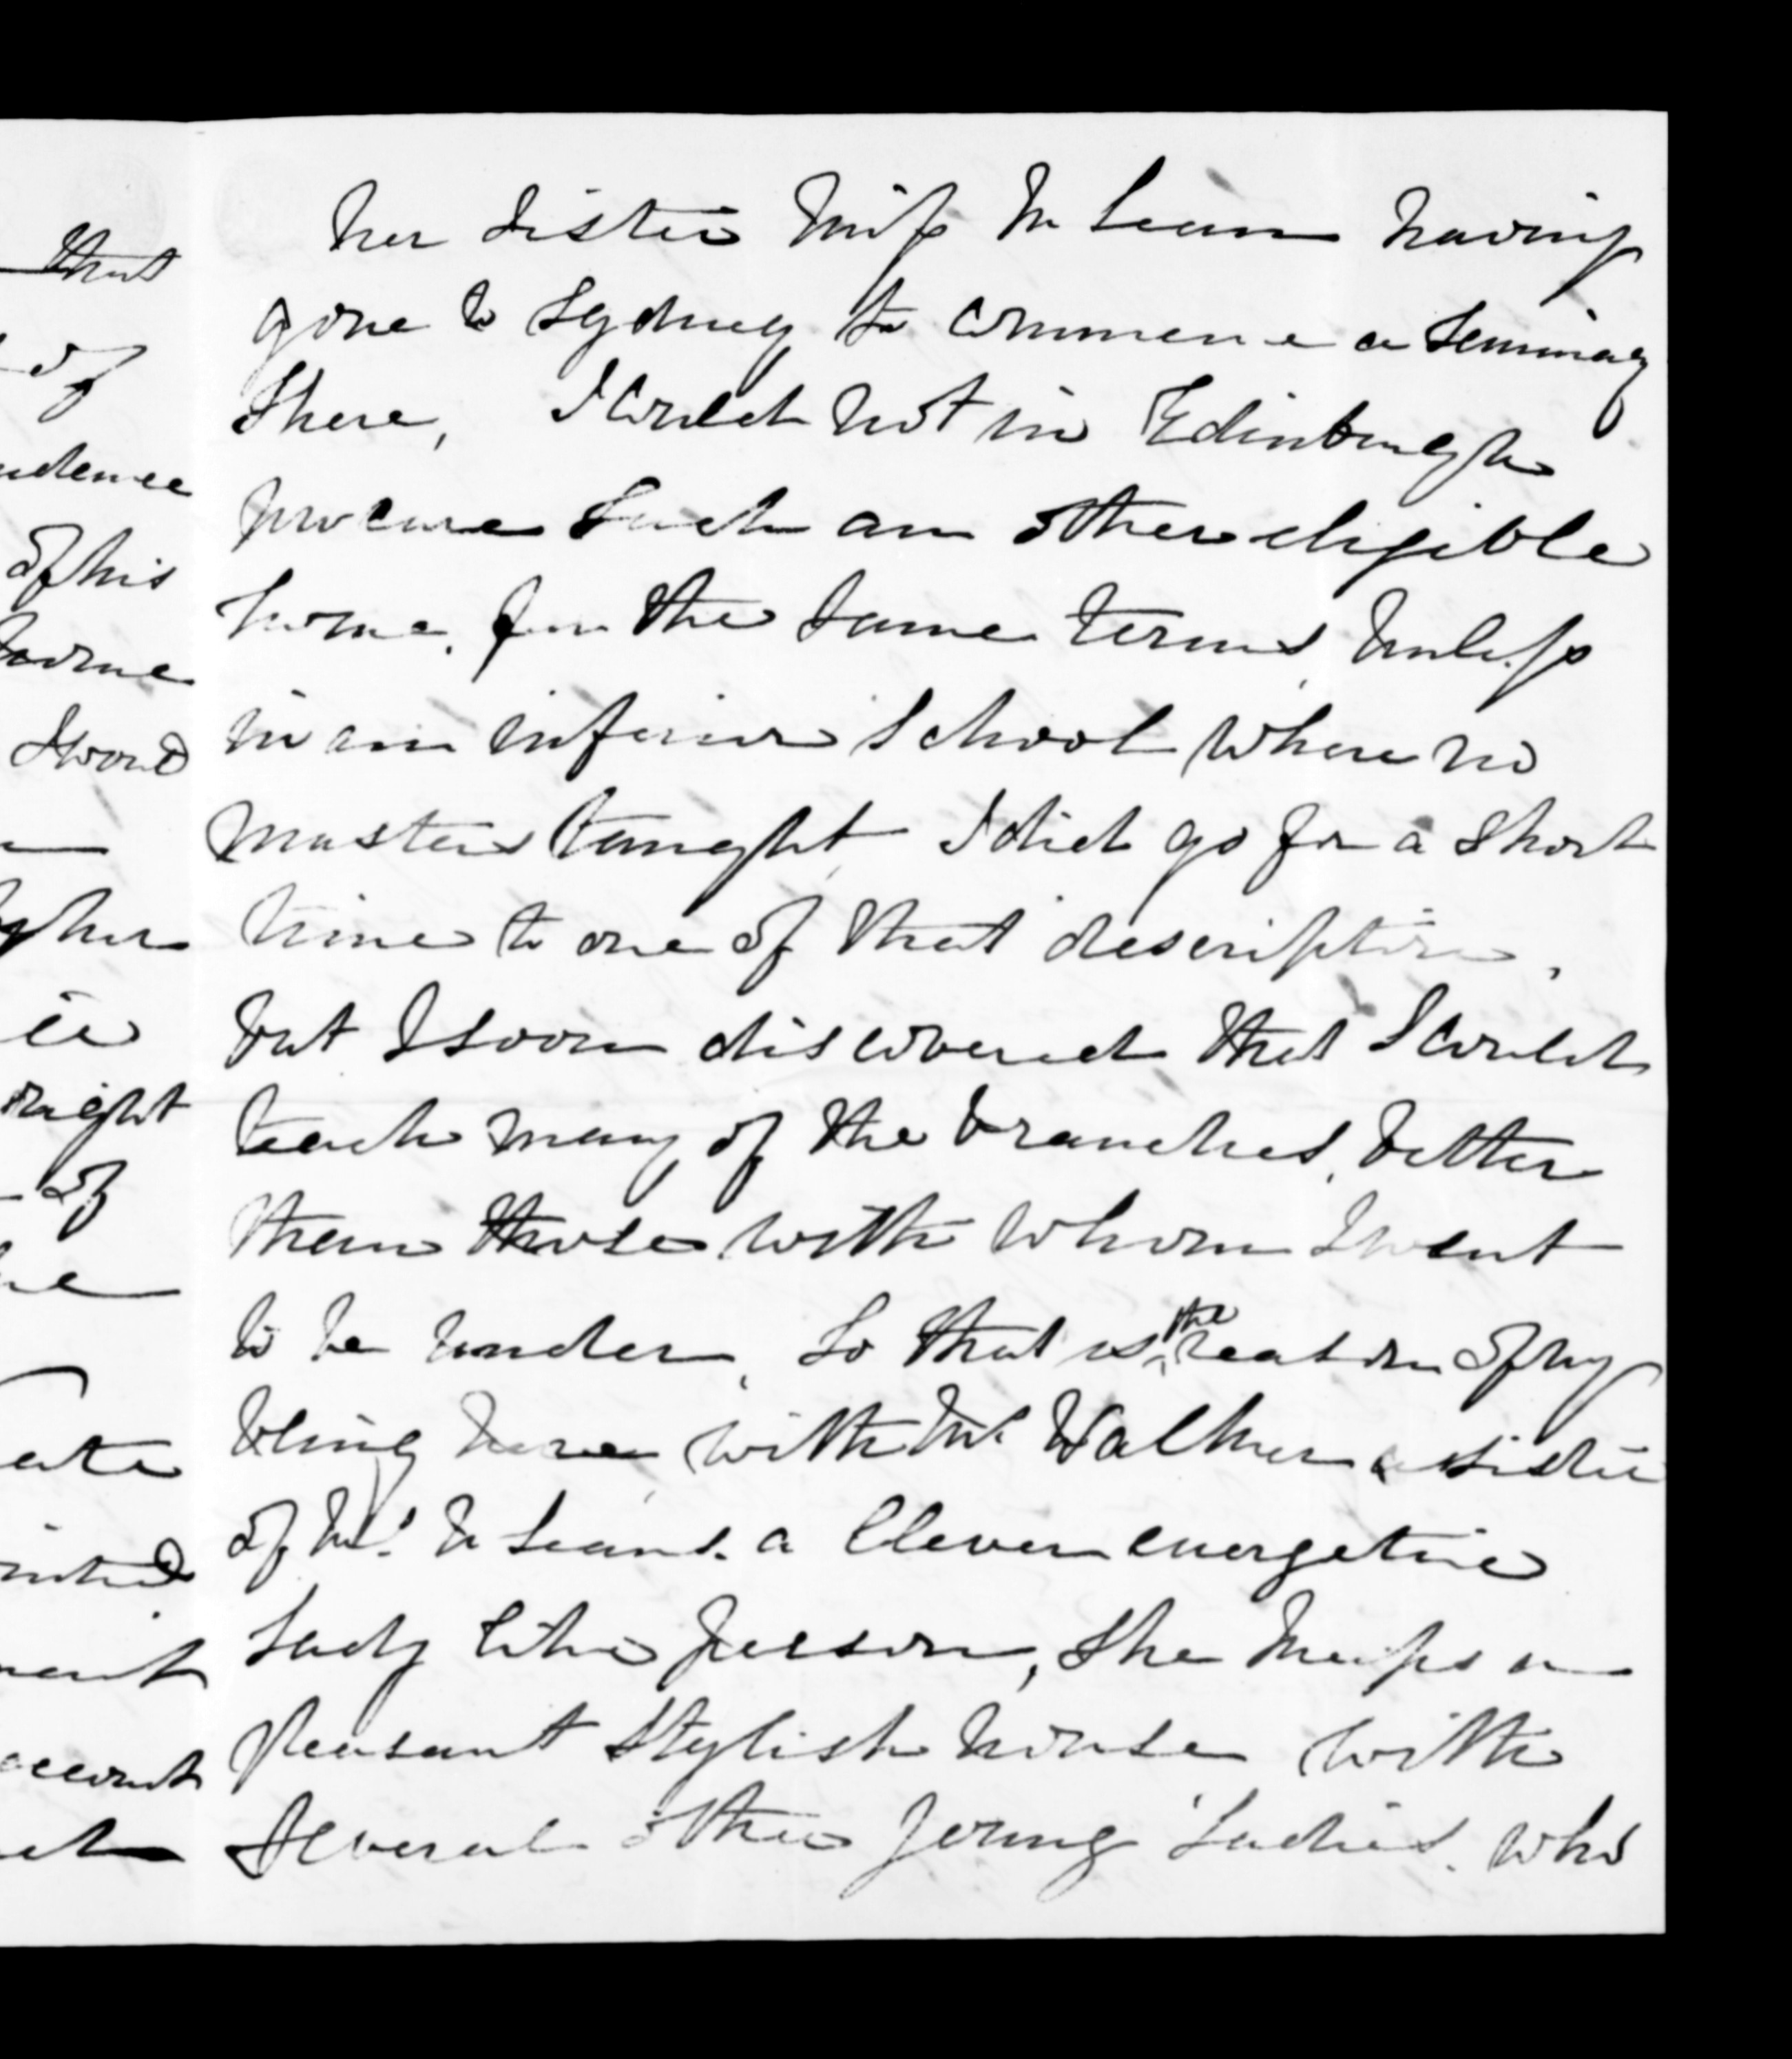 that
of
of his
home
I would
her
right
of
account
her sister Miss McLean having
gone to Sydney to commence a Seminary
there, I could not in Edinburgh
procure such an other eligible
home. for the same terms, unless
in an inferior School where no
masters taught, I did go for a short
time to one of that description,
but I soon discovered that I could
teach many of the branches, better
than those with whom I went
to be under, So that is the reason of my
being here, with Mrs Walker a sister
of Mrs. McLeans. a Clever energetic
Lady like person, She keeps a
pleasant Stylish house with
Several other young Ladies. who